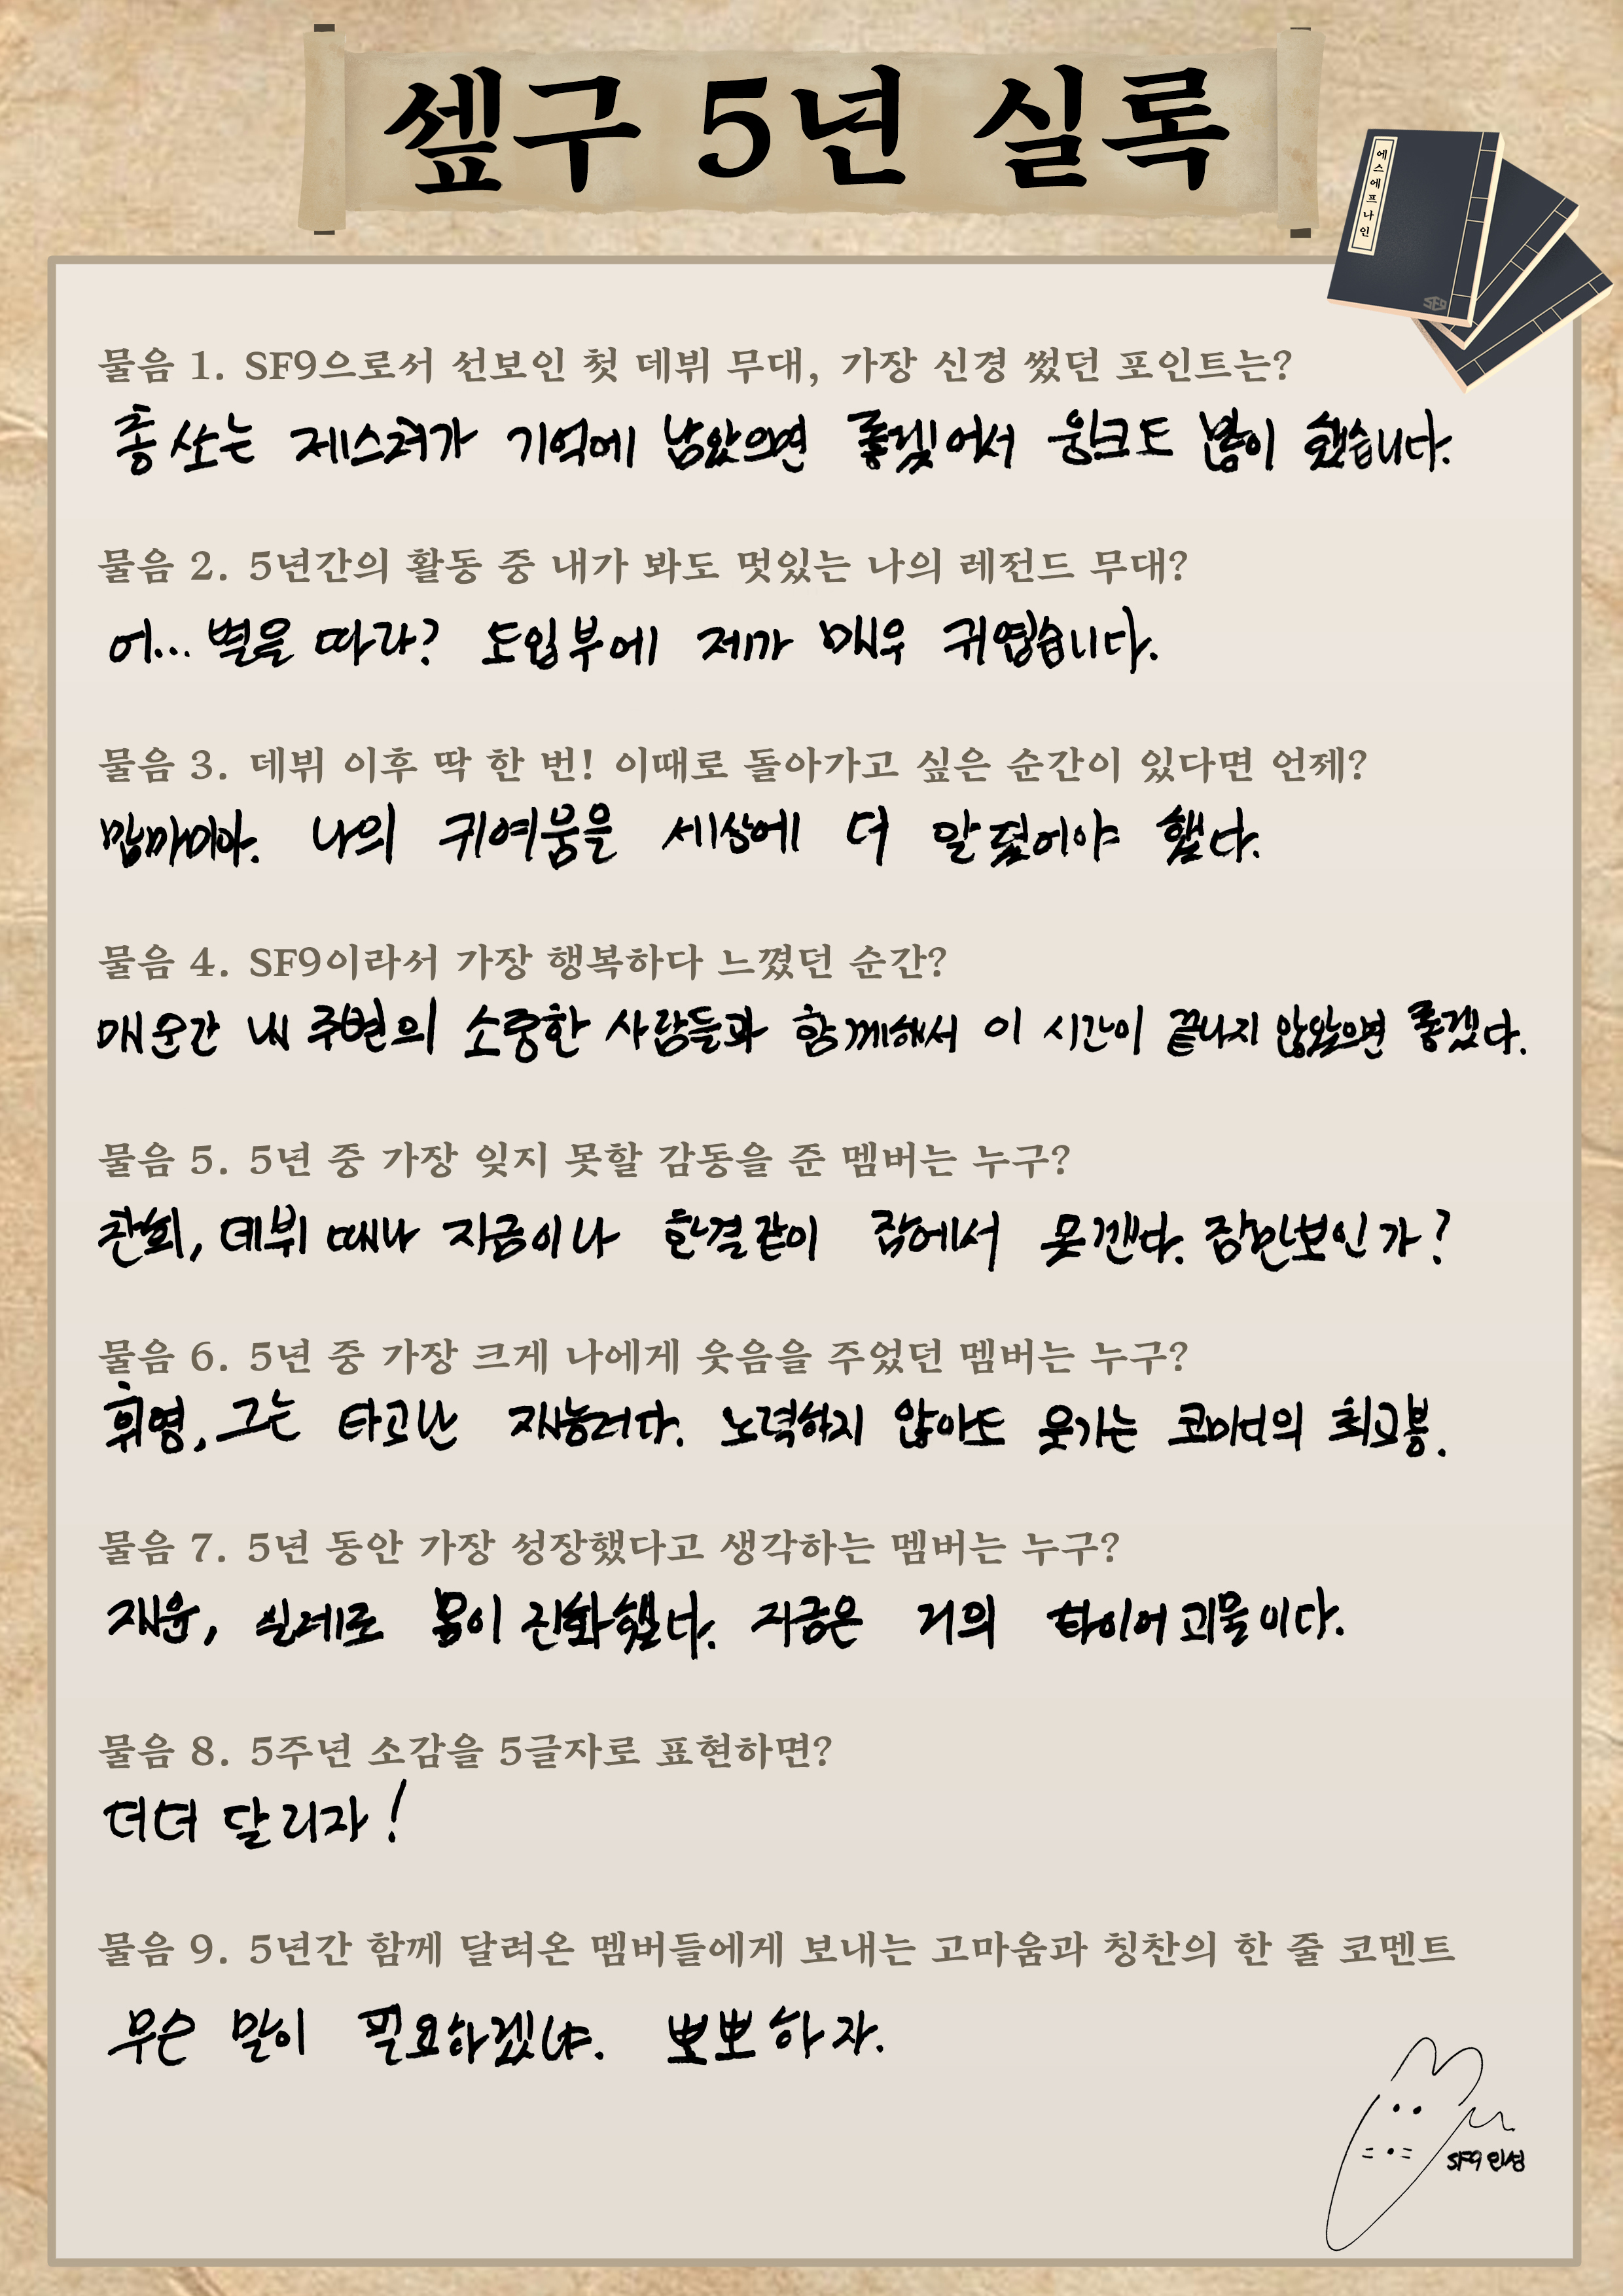 셒구 5년 실록
에스에프나인
SF9
물음 1. SF9으로서 선보인 첫 데뷔 무대, 가장 신경 썼던 포인트는?
총 쏘는 제스쳐가 기억에 남았으면 좋겠어서 윙크도 많이 했습니다.
물음 2. 5년간의 활동 중 내가 봐도 멋있는 나의 레전드 무대?
어... 별을 따라? 도입부에 제가 매우 귀엽습니다.
물음 3. 데뷔 이후 딱 한 번! 이때로 돌아가고 싶은 순간이 있다면 언제?
맘마미아. 나의 귀여움을 세상에 더 말렸어야 했다.
물음 4. SF9이라서 가장 행복하다 느꼈던 순간?
매순간 내 주변의 소중한 사람들과 함께해서 이 시간이 끝나지 않았으면 좋겠다.
물음 5. 5년 중 가장 잊지 못할 감동을 준 멤버는 누구?
찬희, 데뷔 때나 지금이나 한결같이 잠에서 못 깬다. 잠만보인가?
물음 6. 5년 중 가장 크게 나에게 웃음을 주었던 멤버는 누구?
휘영, 그는 타고난 재능러다. 노력하지 않아도 웃기는 코미디의 최고봉.
물음 7. 5년 동안 가장 성장했다고 생각하는 멤버는 누구?
재윤, 실제로 몸이 진화했다. 지금은 거의 타이어 괴물이다.
물음 8. 5주년 소감을 5글자로 표현하면?
더더 달리자!
물음 9. 5년간 함께 달려온 멤버들에게 보내는 고마움과 칭찬의 한 줄 코멘트
무슨 말이 필요하겠냐. 뽀뽀하자.
SF9 인성